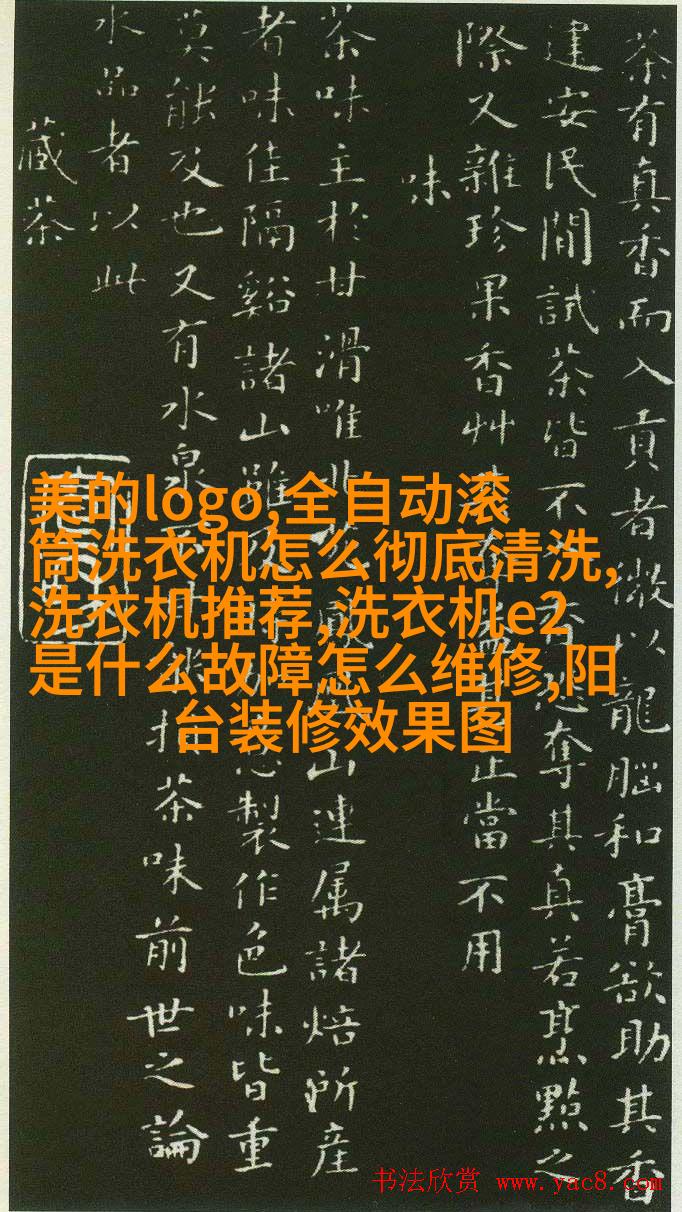 茶有真香而入貢者微以龍腦和膏欲助其香
建安民間試茶皆不恐奪其真若烹點之
際又雜珍果香艸正當不用
味
茶味主於甘滑唯北山連属諸焙所產
者味佳隔谿諸山雖意製作色味皆重
莫能及也又有水泉損茶味前世之論
水品者以此
藏茶
美的logo,全自动滚
筒洗衣机怎么彻底清洗,
洗衣机推荐,洗衣机e2
是什么故障怎么维修,阳
台装修效果图
书法欣赏 www.yac8.com